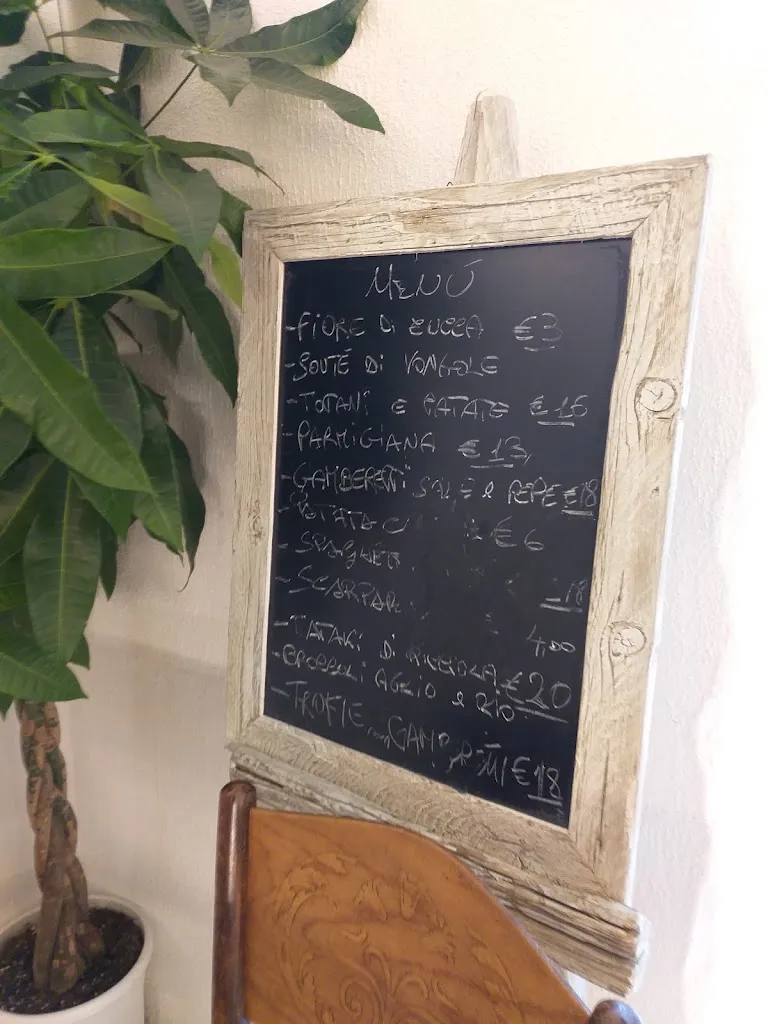 MENÚ
-FIORE DI ZUCCA €3
-SOUTÈ DI VONGOLE
-TOTANI E PATATE €16
-PARMIGIANA €13,
-GAMBERETTI SALE e PEPE €18
€6
-SPAGHETTI 18
- 4,00
-TATAKI DI RICCIOLA €20
-BROCCOLI AGLIO e OLIO
-TROFIE GAMBERETTI €18